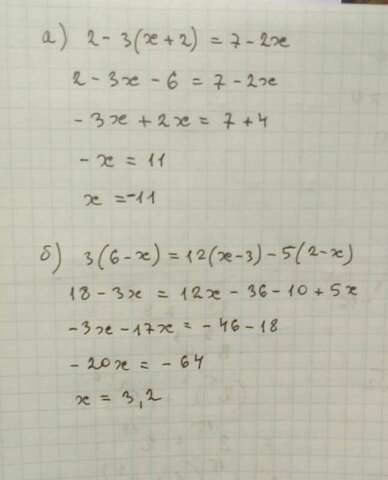 а) 2 - 3(x+2) = 7 - 2x
2 - 3x - 6 = 7 - 2x
- 3x + 2x = 7 + 4
- x = 11
x = -11
б) 3(6-x) = 12(x-3) - 5(2-x)
18 - 3x = 12x - 36 - 10 + 5x
-3x - 17x = - 46 - 18
- 20x = - 64
x = 3,2